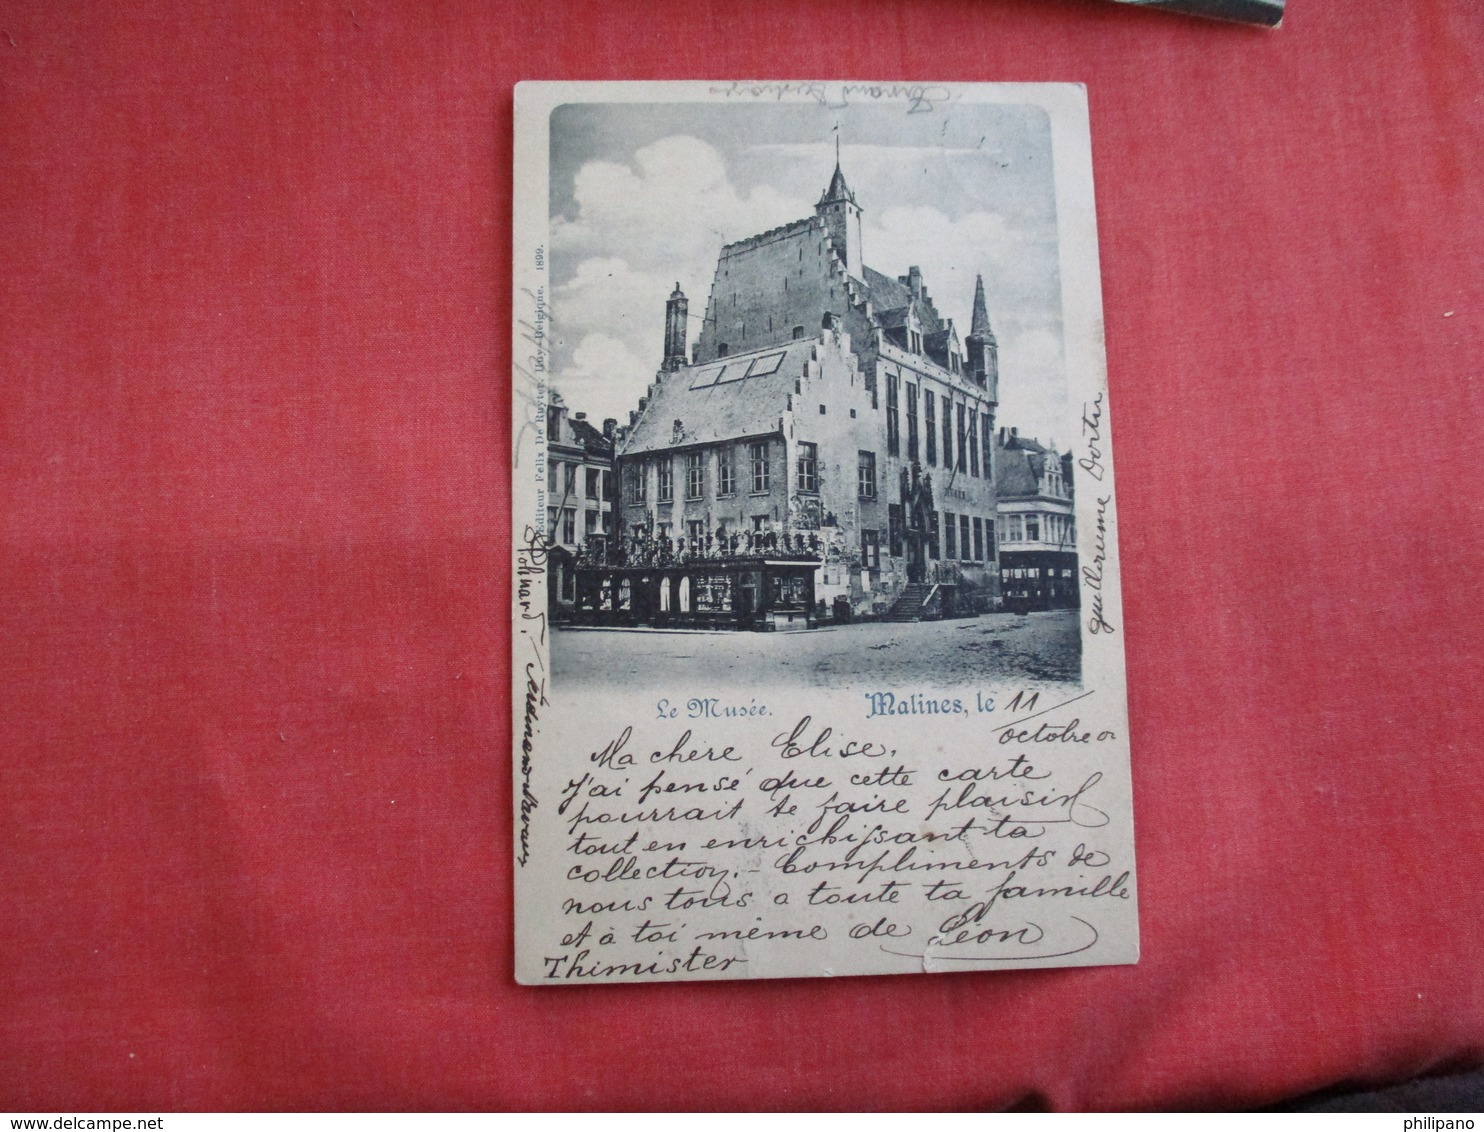 Editeur Felix De Ruyter. Huy-Belgique. 1899.
MUSÉE
Le Musée.
Malines, le 11
octobre
Ma chère Elise.
J'ai pensé que cette carte
pourrait te faire plaisir
tout en enrichissant ta
collection. - Compliments de
nous tous a toute ta famille
et à toi même de Léon
Thimister
Guillaume Dortu
Polinard. Ferdinand
philipano